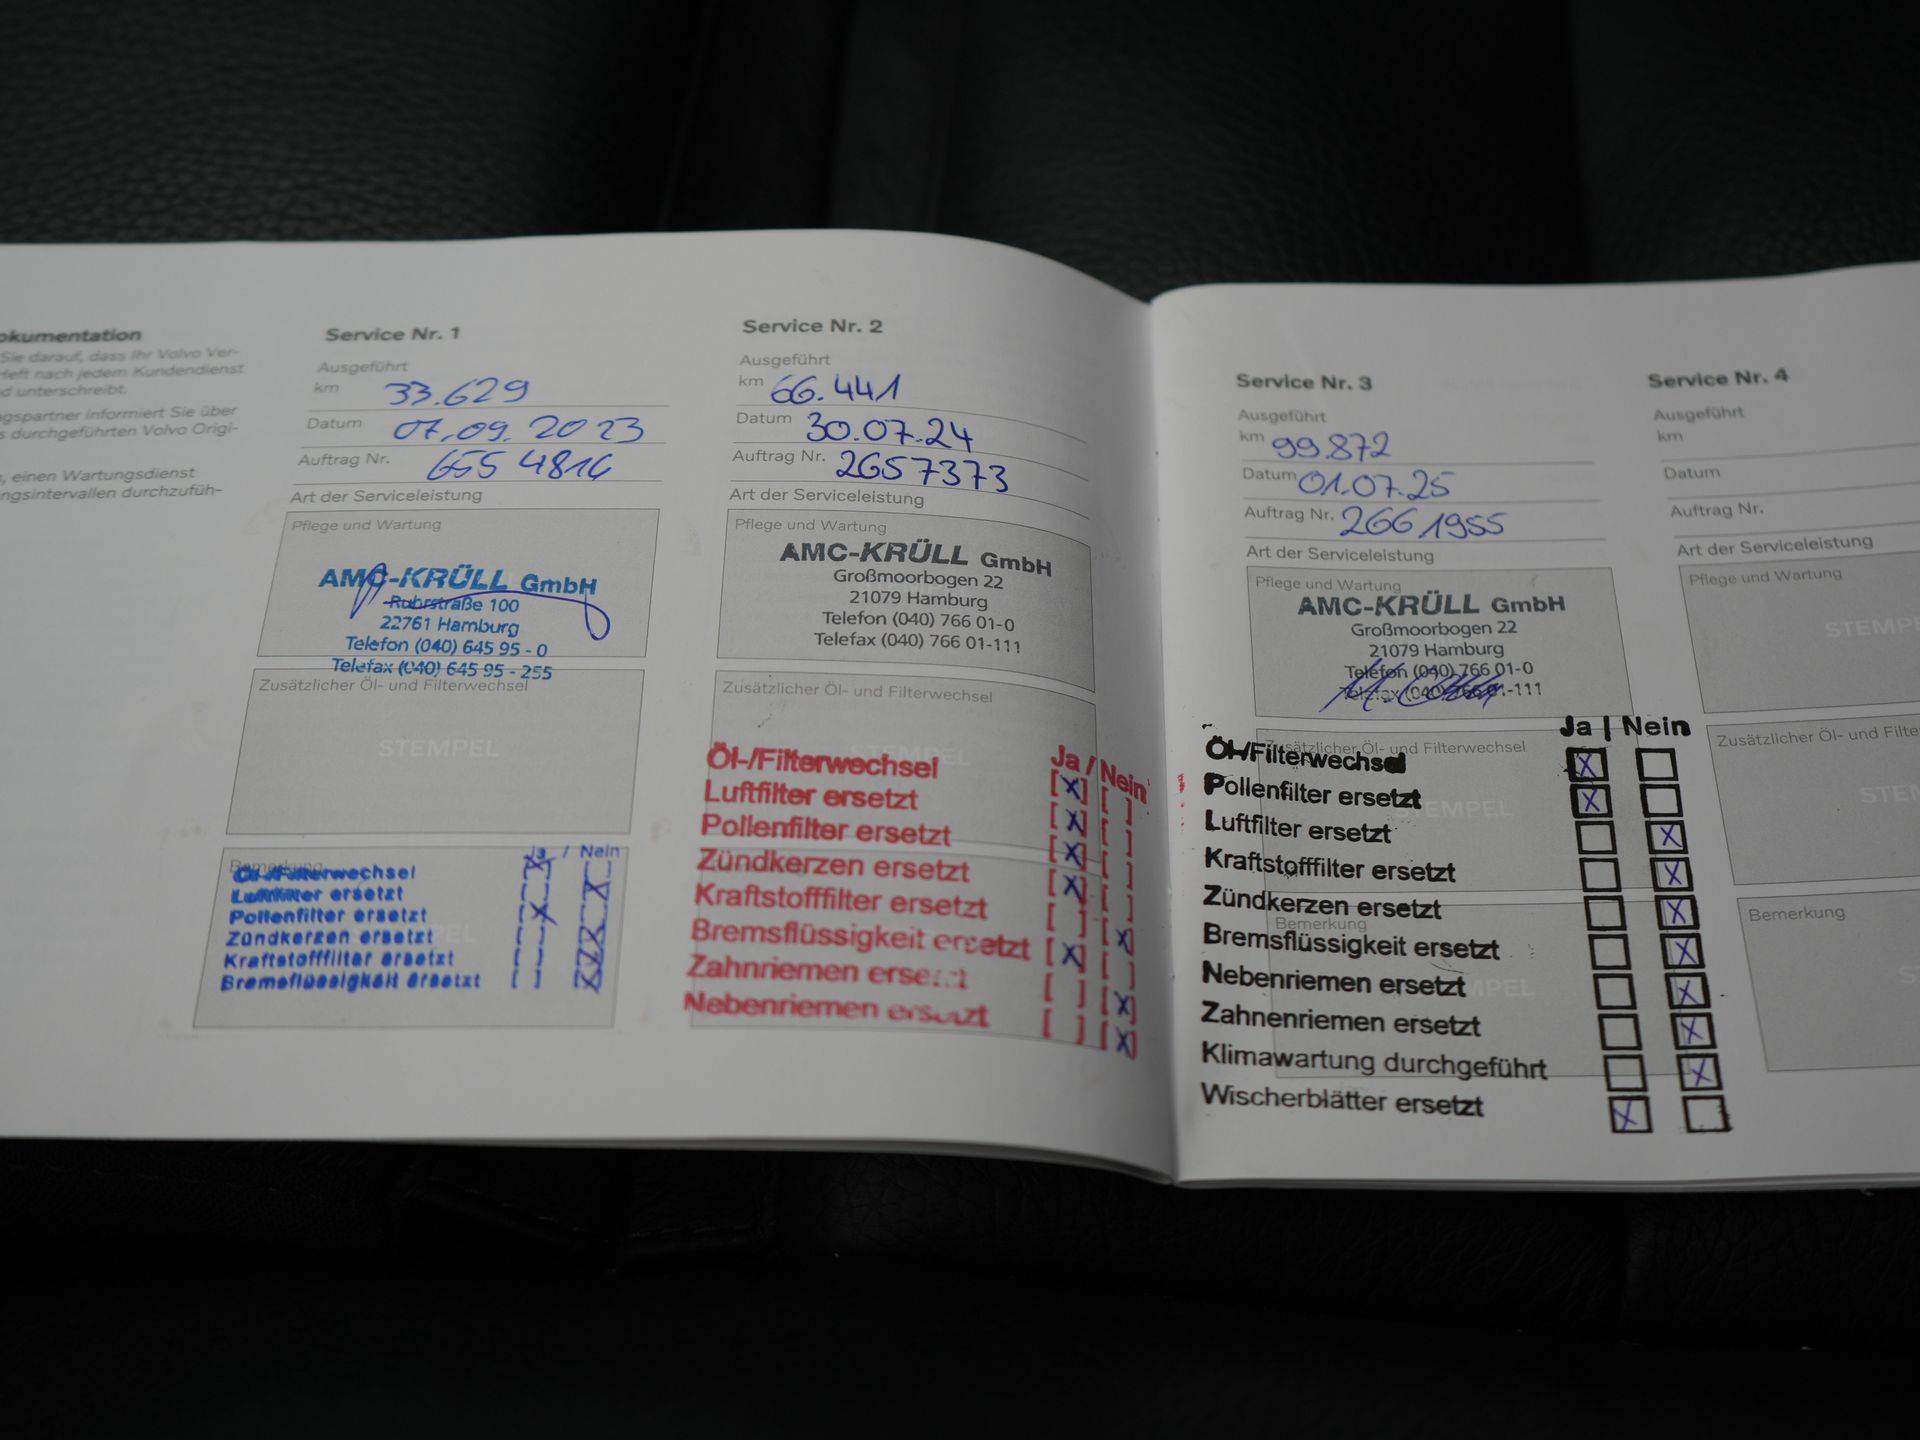 okumentation
Sie darauf, dass Ihr Volvo Ver-
Heft nach jedem Kundendienst
d unterschreibt.
gspartner informiert Sie über
s durchgeführten Volvo Origi-
, einen Wartungsdienst
ngsintervallen durchzufüh-
Service Nr. 1
Ausgeführt
km 33.629
Datum 07.09.2023
Auftrag Nr. 655 4816
Art der Serviceleistung
Pflege und Wartung
AMC-KRÜLL GmbH
Ruhrstraße 100
22761 Hamburg
Telefon (040) 645 95 - 0
Telefax (040) 645 95 - 255
Zusätzlicher Öl- und Filterwechsel
STEMPEL
Bemerkung
Ja / Nein
Öl-/Filterwechsel
Luftfilter ersetzt
Pollenfilter ersetzt
Zündkerzen ersetzt
Kraftstofffilter ersetzt
Bremsflüssigkeit ersetzt
Service Nr. 2
Ausgeführt
km 66.441
Datum 30.07.24
Auftrag Nr. 2657373
Art der Serviceleistung
Pflege und Wartung
AMC-KRÜLL GmbH
Großmoorbogen 22
21079 Hamburg
Telefon (040) 766 01-0
Telefax (040) 766 01-111
Zusätzlicher Öl- und Filterwechsel
STEMPEL
Ja / Nein
Öl-/Filterwechsel [X] [ ]
Luftfilter ersetzt [X] [ ]
Pollenfilter ersetzt [X] [ ]
Zündkerzen ersetzt [X] [ ]
Kraftstofffilter ersetzt [ ] [X]
Bremsflüssigkeit ersetzt [X] [ ]
Zahnriemen ersetzt [ ] [X]
Nebenriemen ersetzt [ ] [X]
Service Nr. 3
Ausgeführt
km 99.872
Datum 01.07.25
Auftrag Nr. 2661955
Art der Serviceleistung
Pflege und Wartung
AMC-KRÜLL GmbH
Großmoorbogen 22
21079 Hamburg
Telefon (040) 766 01-0
Telefax (040) 766 01-111
Zusätzlicher Öl- und Filterwechsel
STEMPEL
Bemerkung
Ja | Nein
Öl-/Filterwechsel X
Pollenfilter ersetzt X
Luftfilter ersetzt X
Kraftstofffilter ersetzt X
Zündkerzen ersetzt X
Bremsflüssigkeit ersetzt X
Nebenriemen ersetzt X
Zahnenriemen ersetzt X
Klimawartung durchgeführt X
Wischerblätter ersetzt X
Service Nr. 4
Ausgeführt
km
Datum
Auftrag Nr.
Art der Serviceleistung
Pflege und Wartung
STEMPE
Zusätzlicher Öl- und Filte
STEM
Bemerkung